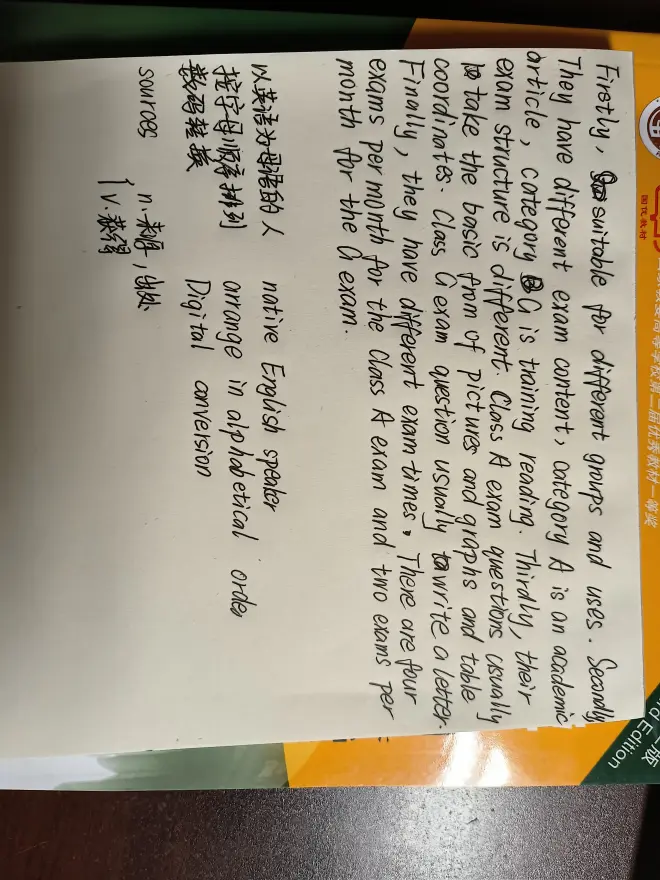 Firstly, suitable for different groups and uses. Secondly
They have different exam content, category A is an academic
article, category G is training reading. Thirdly, their
exam structure is different. Class A exam questions usually
to take the basic from of pictures and graphs and table
coordinates. Class G exam question usually to write a letter.
Finally, they have different exam times. There are four
exams per month for the Class A exam and two exams per
month for the G exam.
以英语为母语的人 native English speaker
按字母顺序排列 arrange in alphabetical order
数码转换 Digital conversion
sources n.来源,出处
v.获得
国优教材
高等学校第二届优秀教材一等奖
版
Edition